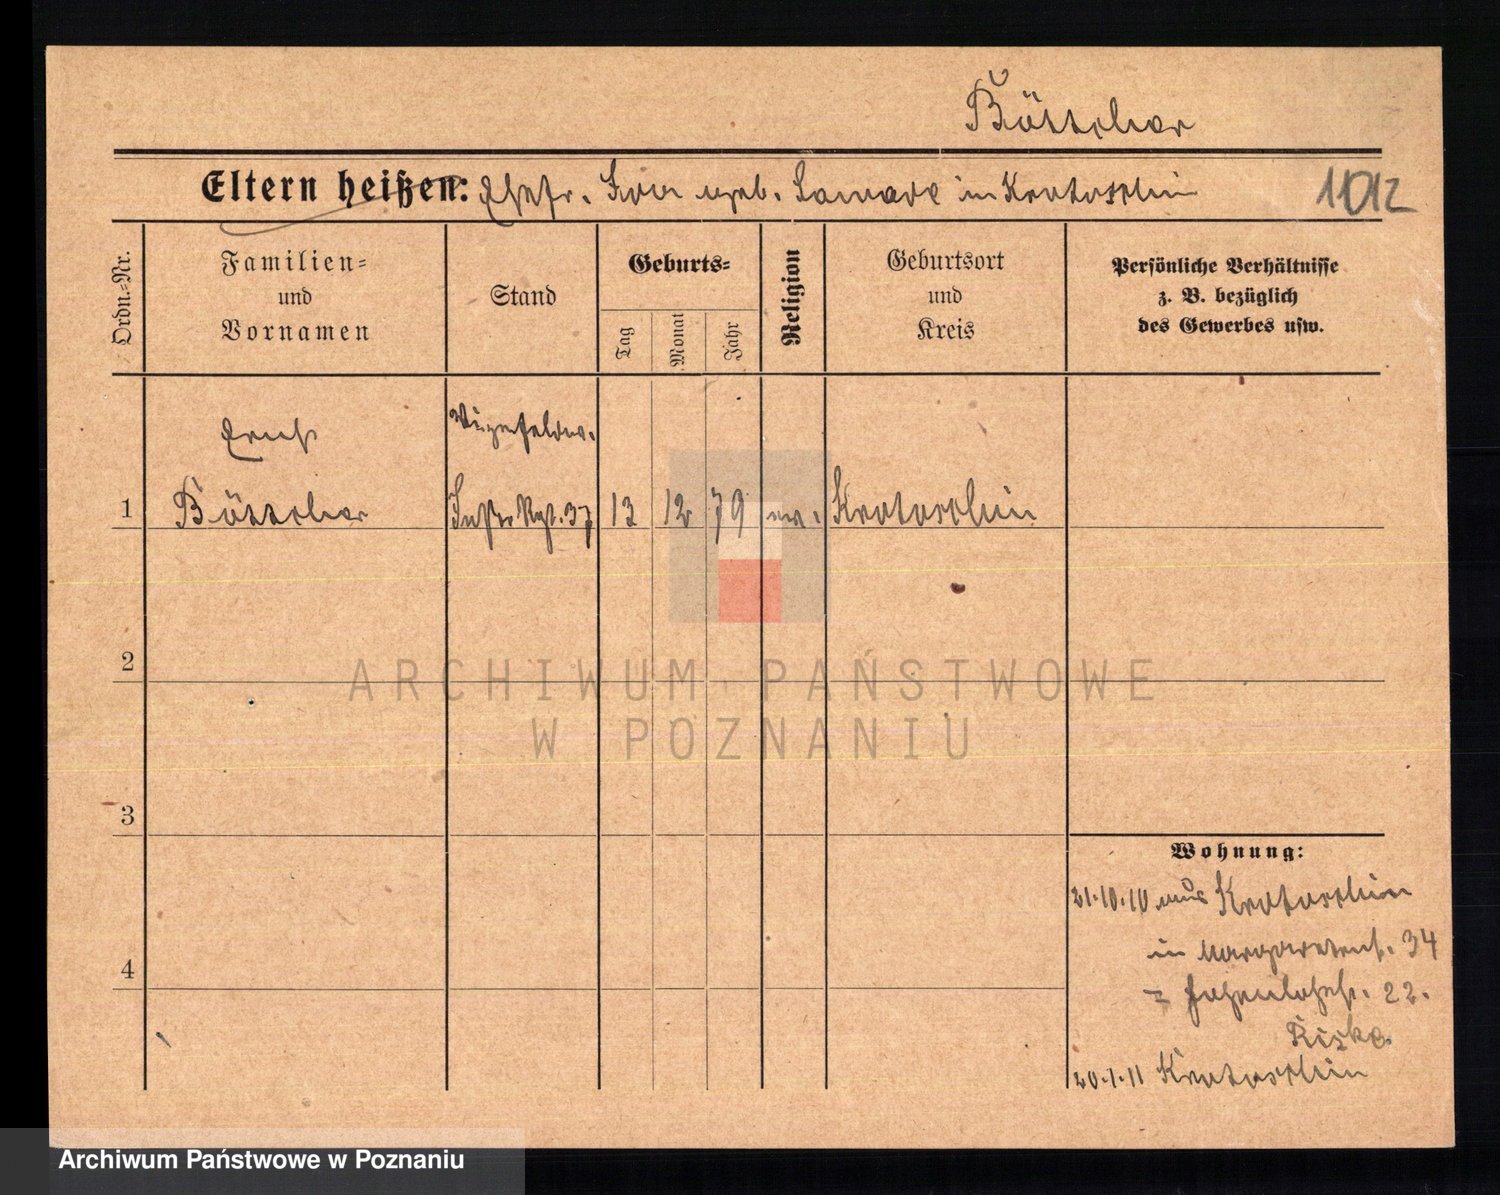 Böttcher
Eltern heißen: Ehefr. geb. in Krotoschin 11012
Ordn.-Nr.
Familien-
und
Vornamen
Stand
Geburts-
Tag
Monat
Jahr
Religion
Geburtsort
und
Kreis
Persönliche Verhältnisse
z. B. bezüglich
des Gewerbes usw.
Erich Vizefeldw.
1 Böttcher Rgt. 37 13 12 79 ev. Krotoschin
2
3
4
Wohnung:
21.10.10 aus Krotoschin
in Margaretenst. 34
= Hohenlohest. 22.
20.1.11 Krotoschin
ARCHIWUM PAŃSTWOWE
W POZNANIU
Archiwum Państwowe w Poznaniu